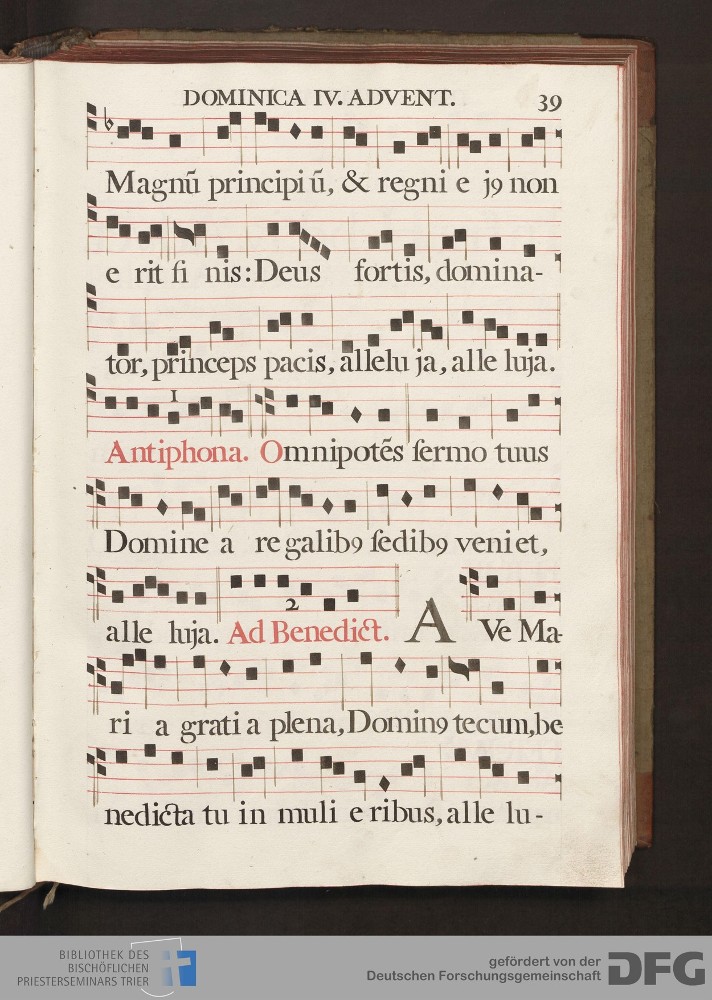 DOMINICA IV. ADVENT. 39
Magnũ principi ũ, & regni e jꝰ non
e rit fi nis: Deus fortis, domina-
tor, princeps pacis, allelu ja, alle luja.
1
Antiphona. Omnipotẽs sermo tuus
Domine a re galibꝰ sedibꝰ veniet,
2
alle luja. Ad Benedict. A Ve Ma-
ri a grati a plena, Dominꝰ tecum, be
nedicta tu in muli e ribus, alle lu-
BIBLIOTHEK DES
BISCHÖFLICHEN
PRIESTERSEMINARS TRIER
gefördert von der
Deutschen Forschungsgemeinschaft
DFG